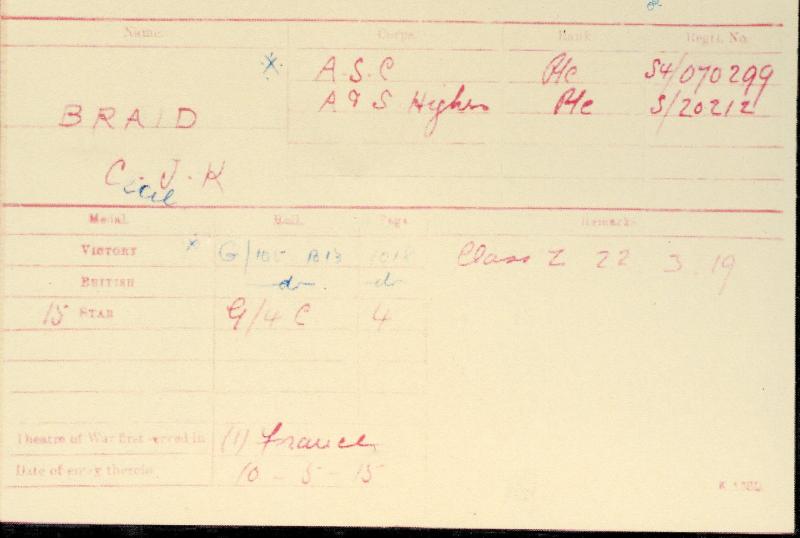 Name. Corps. Rank. Regtl. No.
* A.S.C Pte S4/070299
A & S Highrs Pte S/20212
BRAID
C. J. K
Cecil
Medal. Roll. Page. Remarks.
VICTORY * G/105 B13 1018 Class Z 22 3. 19
BRITISH do. do
15 STAR G/4 C 4
Theatre of War first served in (1) France
Date of entry therein 10 - 5 - 15